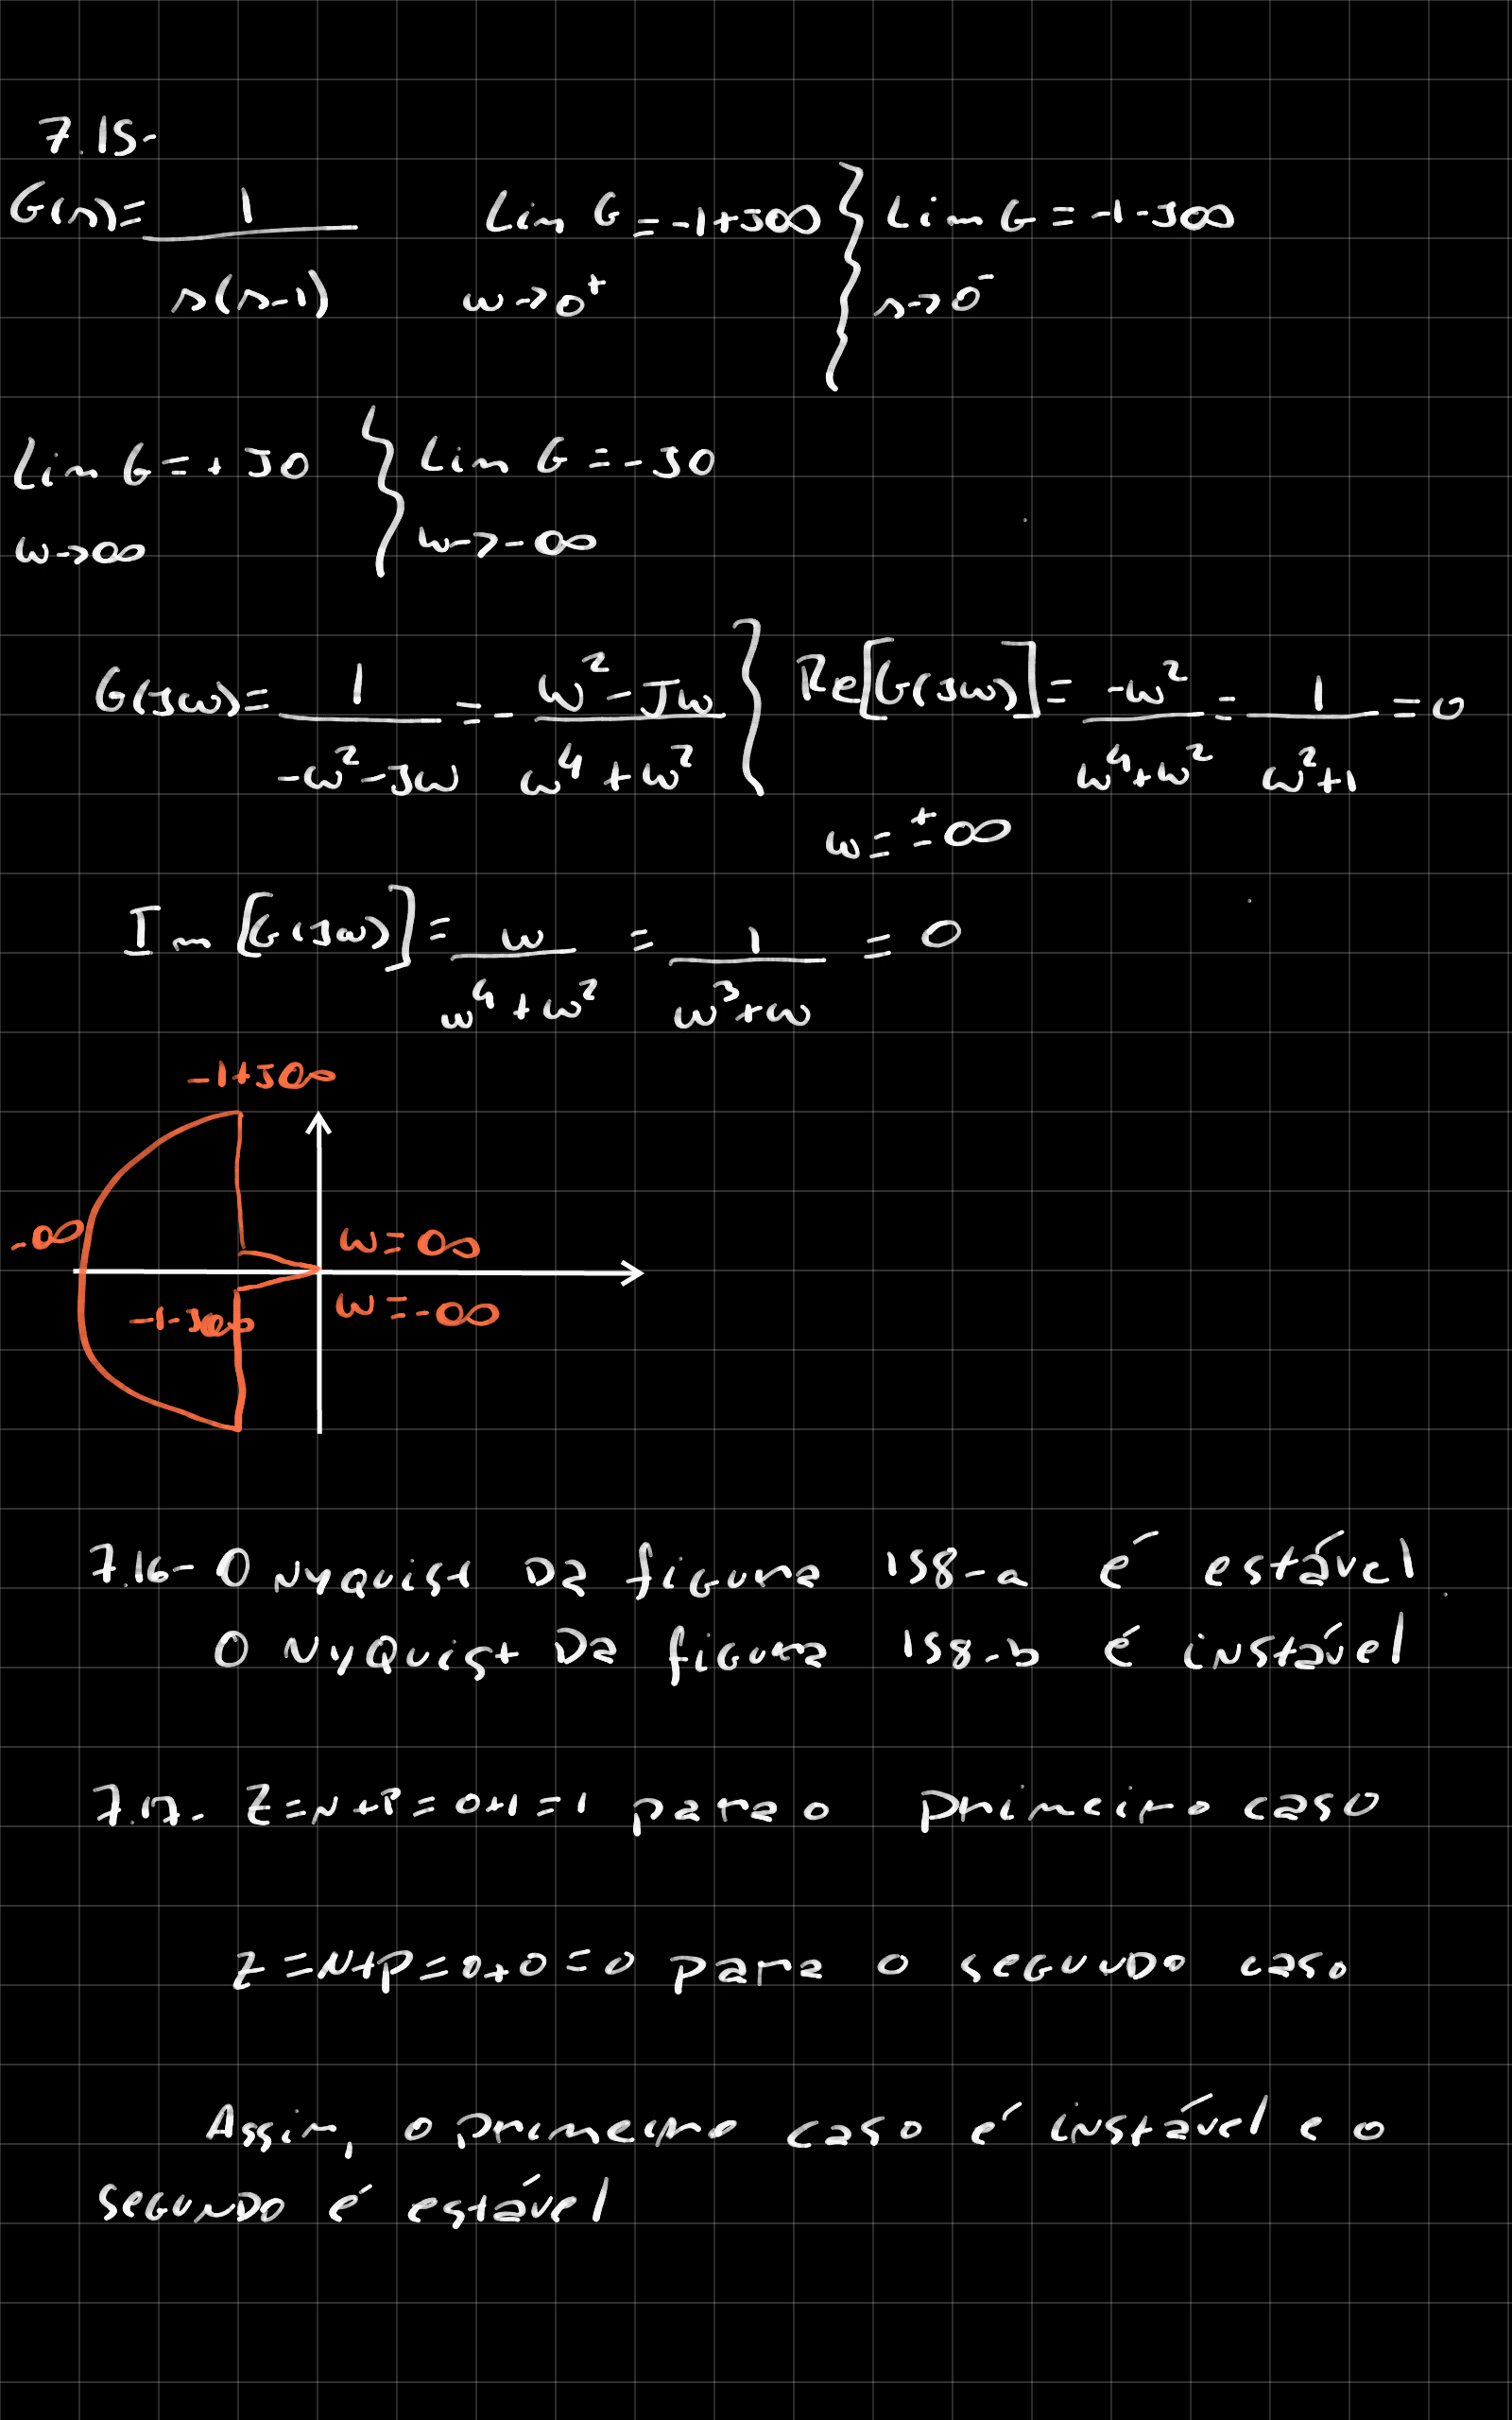 7.15-
G(s)= 1/(s(s-1)) Lim G=-1+J∞ w->0⁺ } Lim G=-1-J∞ s->0⁻
Lim G=+J0 w->∞ } Lim G=-J0 w->-∞
G(Jw)= 1/(-w²-Jw) =- (w²-Jw)/(w⁴+w²) } Re[G(Jw)]= -w²/(w⁴+w²) - 1/(w²+1) =0
w=±∞
Im[G(Jw)]= w/(w⁴+w²) = 1/(w³+w) = 0
-1+J∞
-∞
w=∞
w=-∞
-1-J∞
7.16- O Nyquist Da figura 158-a é estável
O NyQuist Da figura 158-b é instável
7.17- Z=N+P=0+1=1 para o primeiro caso
Z=N+P=0+0=0 para o segundo caso
Assim, o primeiro caso é instável e o
segundo é estável